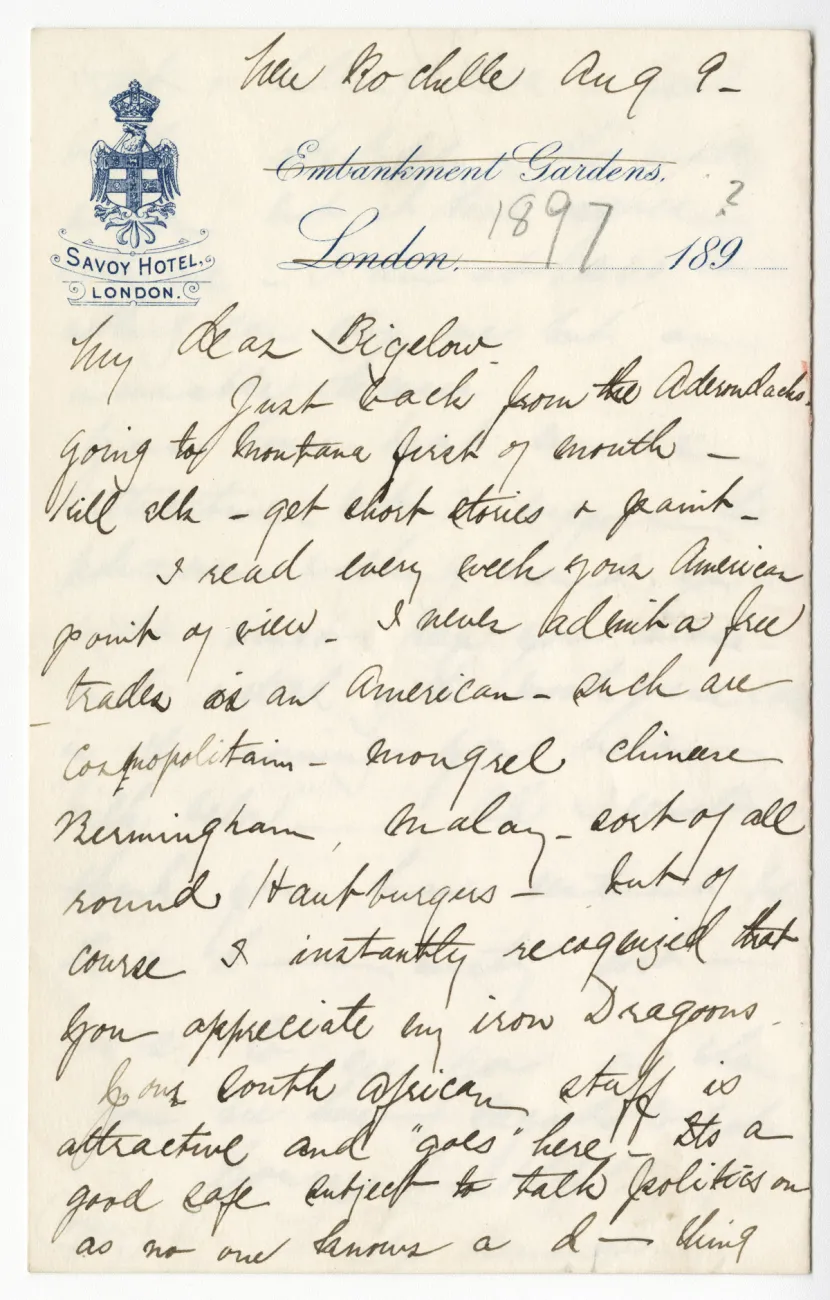 New Rochelle Aug 9-
Embankment Gardens.
1897 ?
London. 189
SAVOY HOTEL,
LONDON.
My dear Bigelow
Just back from the Aderondacks.
Going to Montana first of month -
kill elk - get short stories & paint -
I read every week your American
point of view - I never admit a free
trader is an American - such are
Cosmopolitain - mongrel chinese
Bermingham, Malay - sort of all
round Hautburgers - but of
course I instantly recognized that
you appreciate my iron Dragoons.
Your South African stuff is
attractive and "goes" here - Its a
good safe subject to talk politics on
as no one knows a d- thing